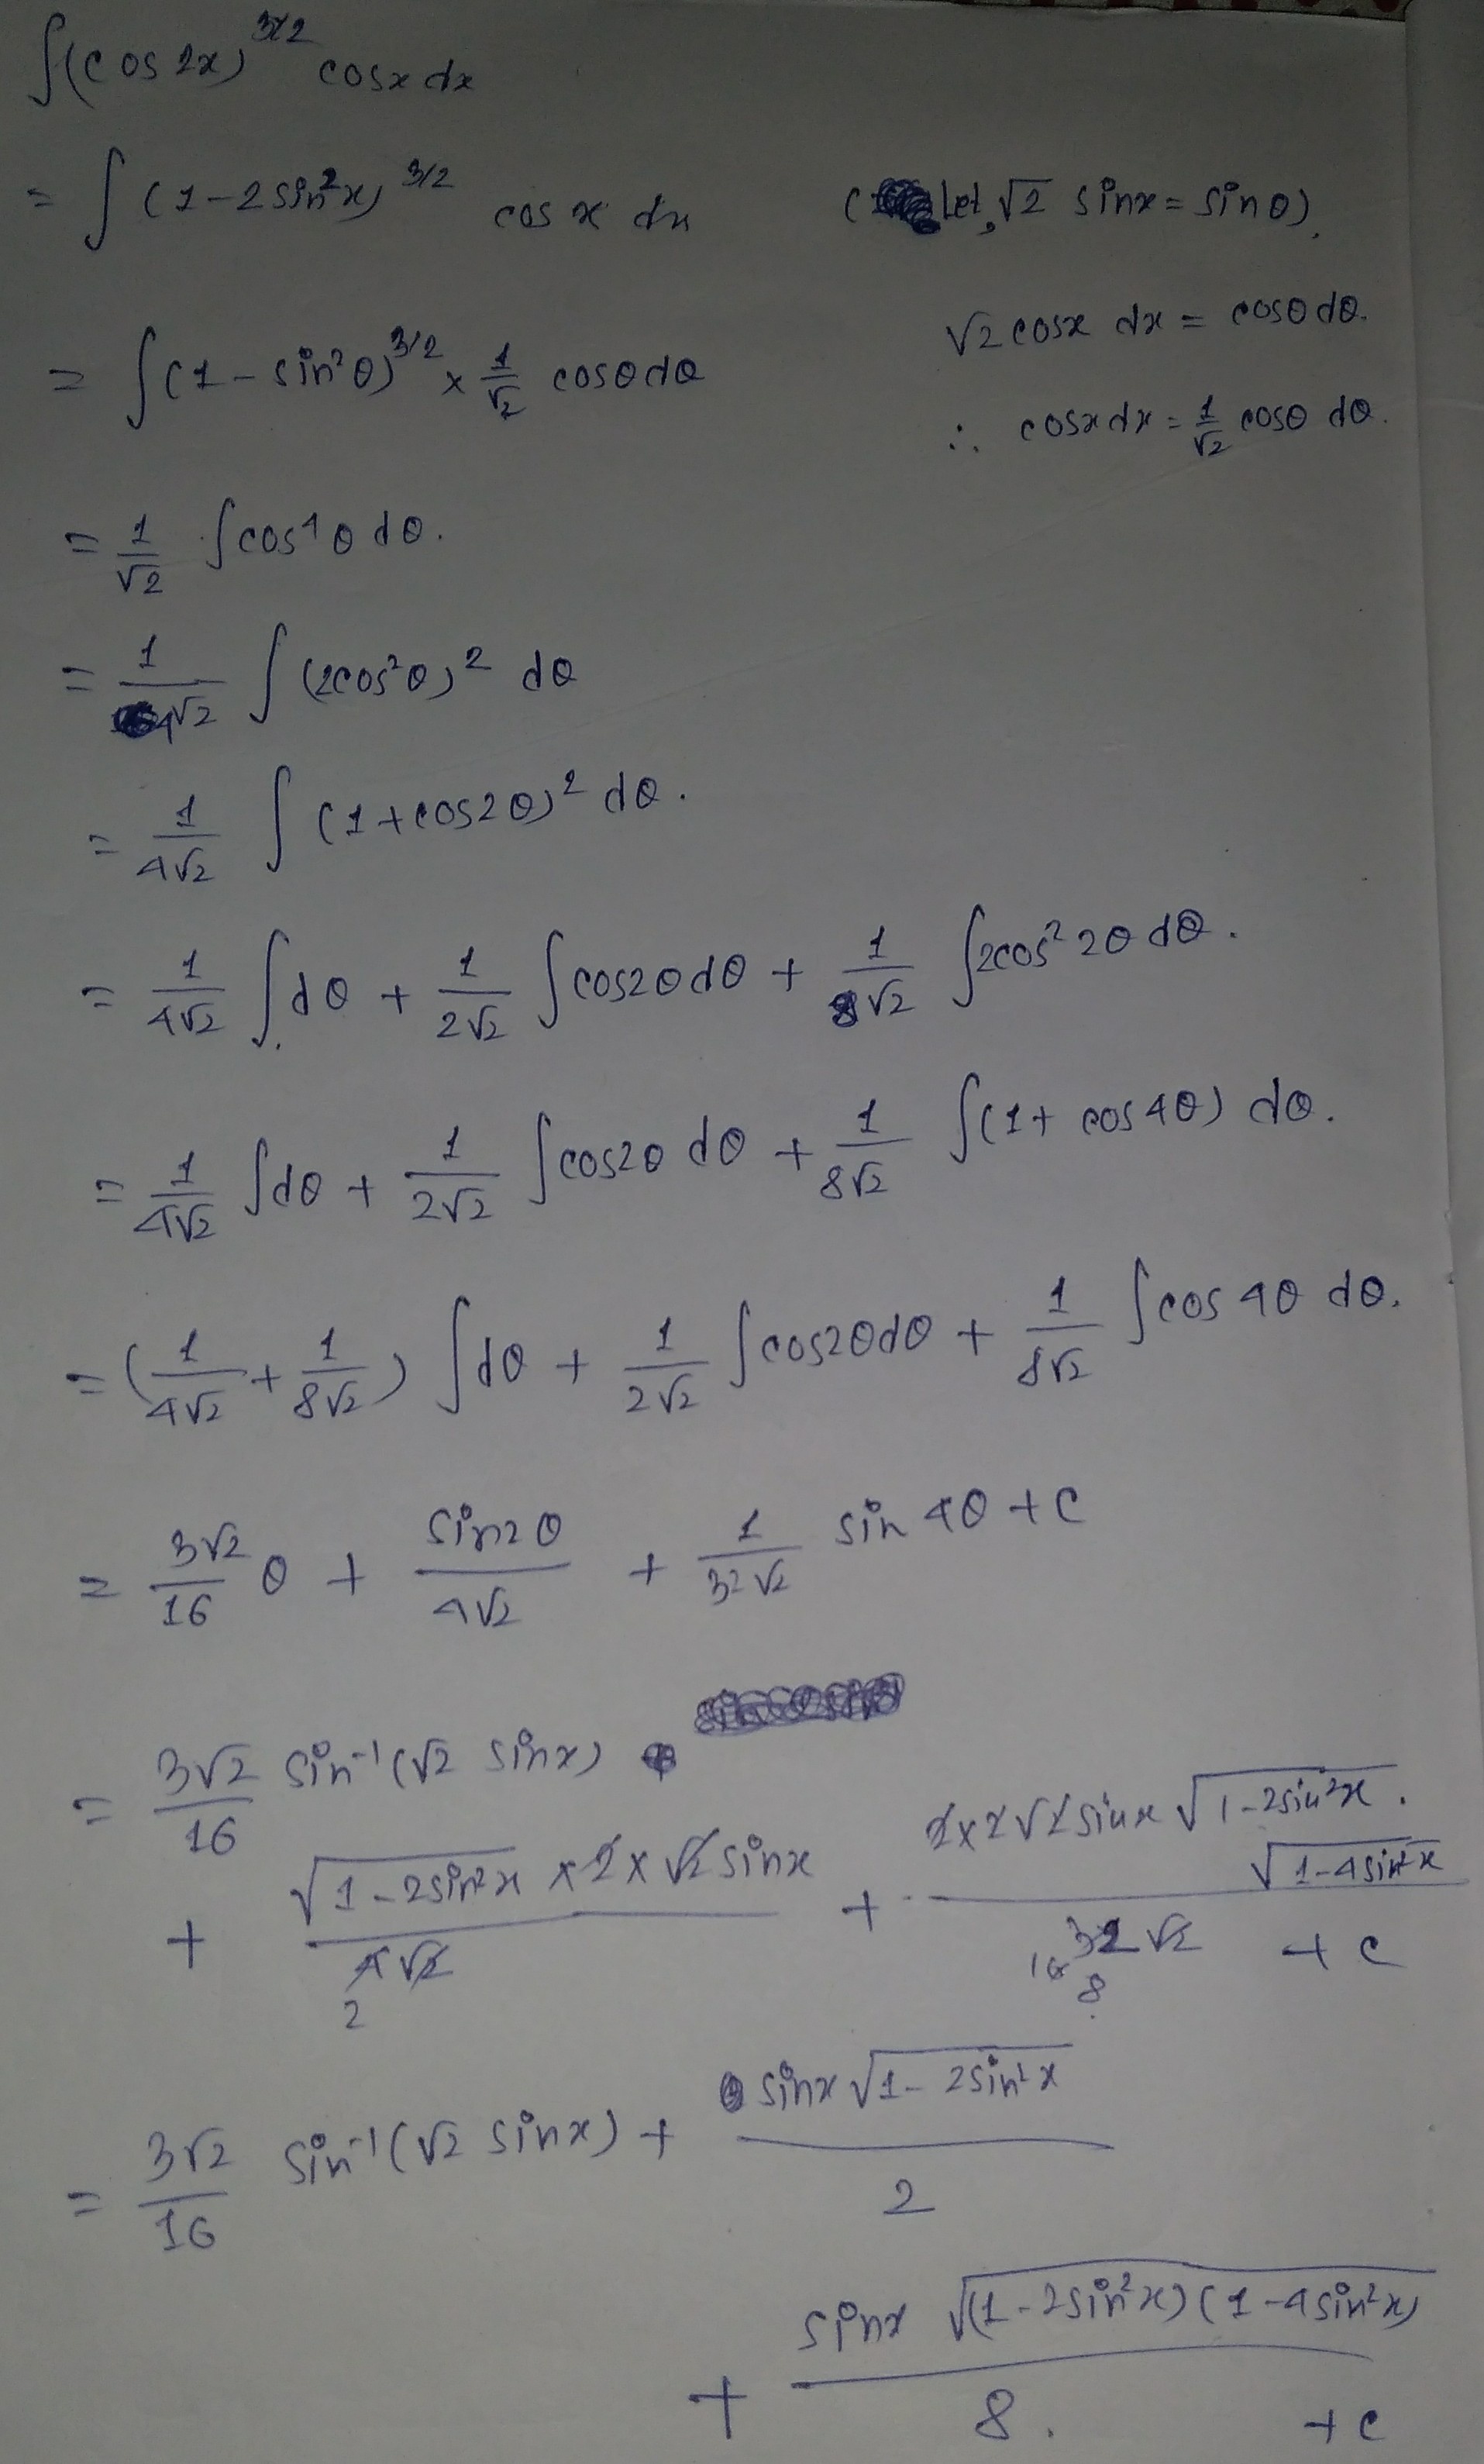 ∫(cos 2x)^{3/2} cosx dx
= ∫ (1-2sin²x)^{3/2} cos x dx (let, √2 sinx = sinθ).
√2 cosx dx = cosθ dθ.
= ∫(1-sin²θ)^{3/2} × 1/√2 cosθ dθ
∴ cosx dx = 1/√2 cosθ dθ.
= 1/√2 ∫cos⁴θ dθ.
= 1/4√2 ∫ (2cos²θ)² dθ
= 1/4√2 ∫ (1+cos2θ)² dθ.
= 1/4√2 ∫dθ + 1/2√2 ∫cos2θ dθ + 1/8√2 ∫2cos²2θ dθ.
= 1/4√2 ∫dθ + 1/2√2 ∫cos2θ dθ + 1/8√2 ∫(1+ cos4θ) dθ.
= (1/4√2 + 1/8√2) ∫dθ + 1/2√2 ∫cos2θdθ + 1/8√2 ∫cos 4θ dθ.
= 3√2/16 θ + sin2θ/4√2 + 1/32√2 sin 4θ + c
= 3√2/16 sin⁻¹(√2 sinx)
+ √1-2sin²x × 2 × √2 sinx / 4√2 2 + 2×2√2 sinx √1-2sin²x . √1-4sin²x / 32√2 16 8 + c
= 3√2/16 sin⁻¹(√2 sinx) + sinx √1-2sin²x / 2
+ sinx √(1-2sin²x)(1-4sin²x) / 8. + c